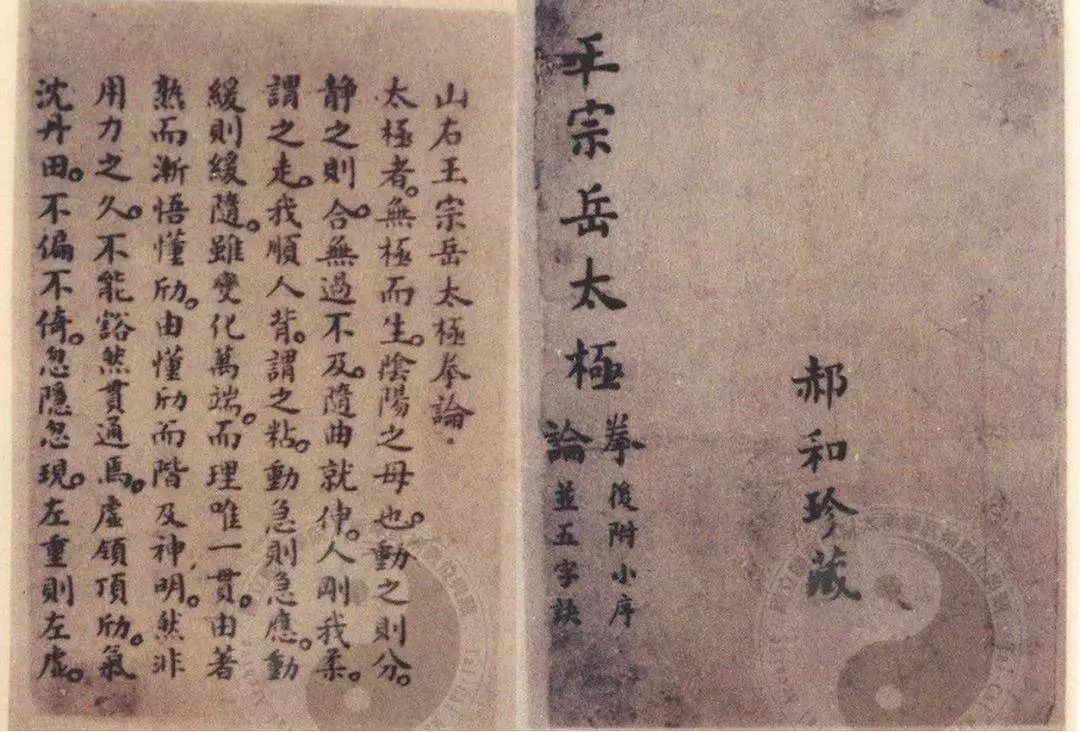 郝和珍藏
王宗岳太極
拳後附小序
論並五字訣
山右王宗岳太極拳論.
太極者。無極而生。陰陽之母也。動之則分。
静之則合。無過不及。隨曲就伸。人剛我柔。
謂之走。我順人背。謂之粘。動急則急應。動
緩則緩隨。雖變化萬端。而理唯一貫。由著
熟而漸悟懂劤。由懂劤而階及神明。然非
用力之久。不能豁然貫通焉。虛領頂劤。氣
沈丹田。不偏不倚。忽隱忽現。左重則左虛。